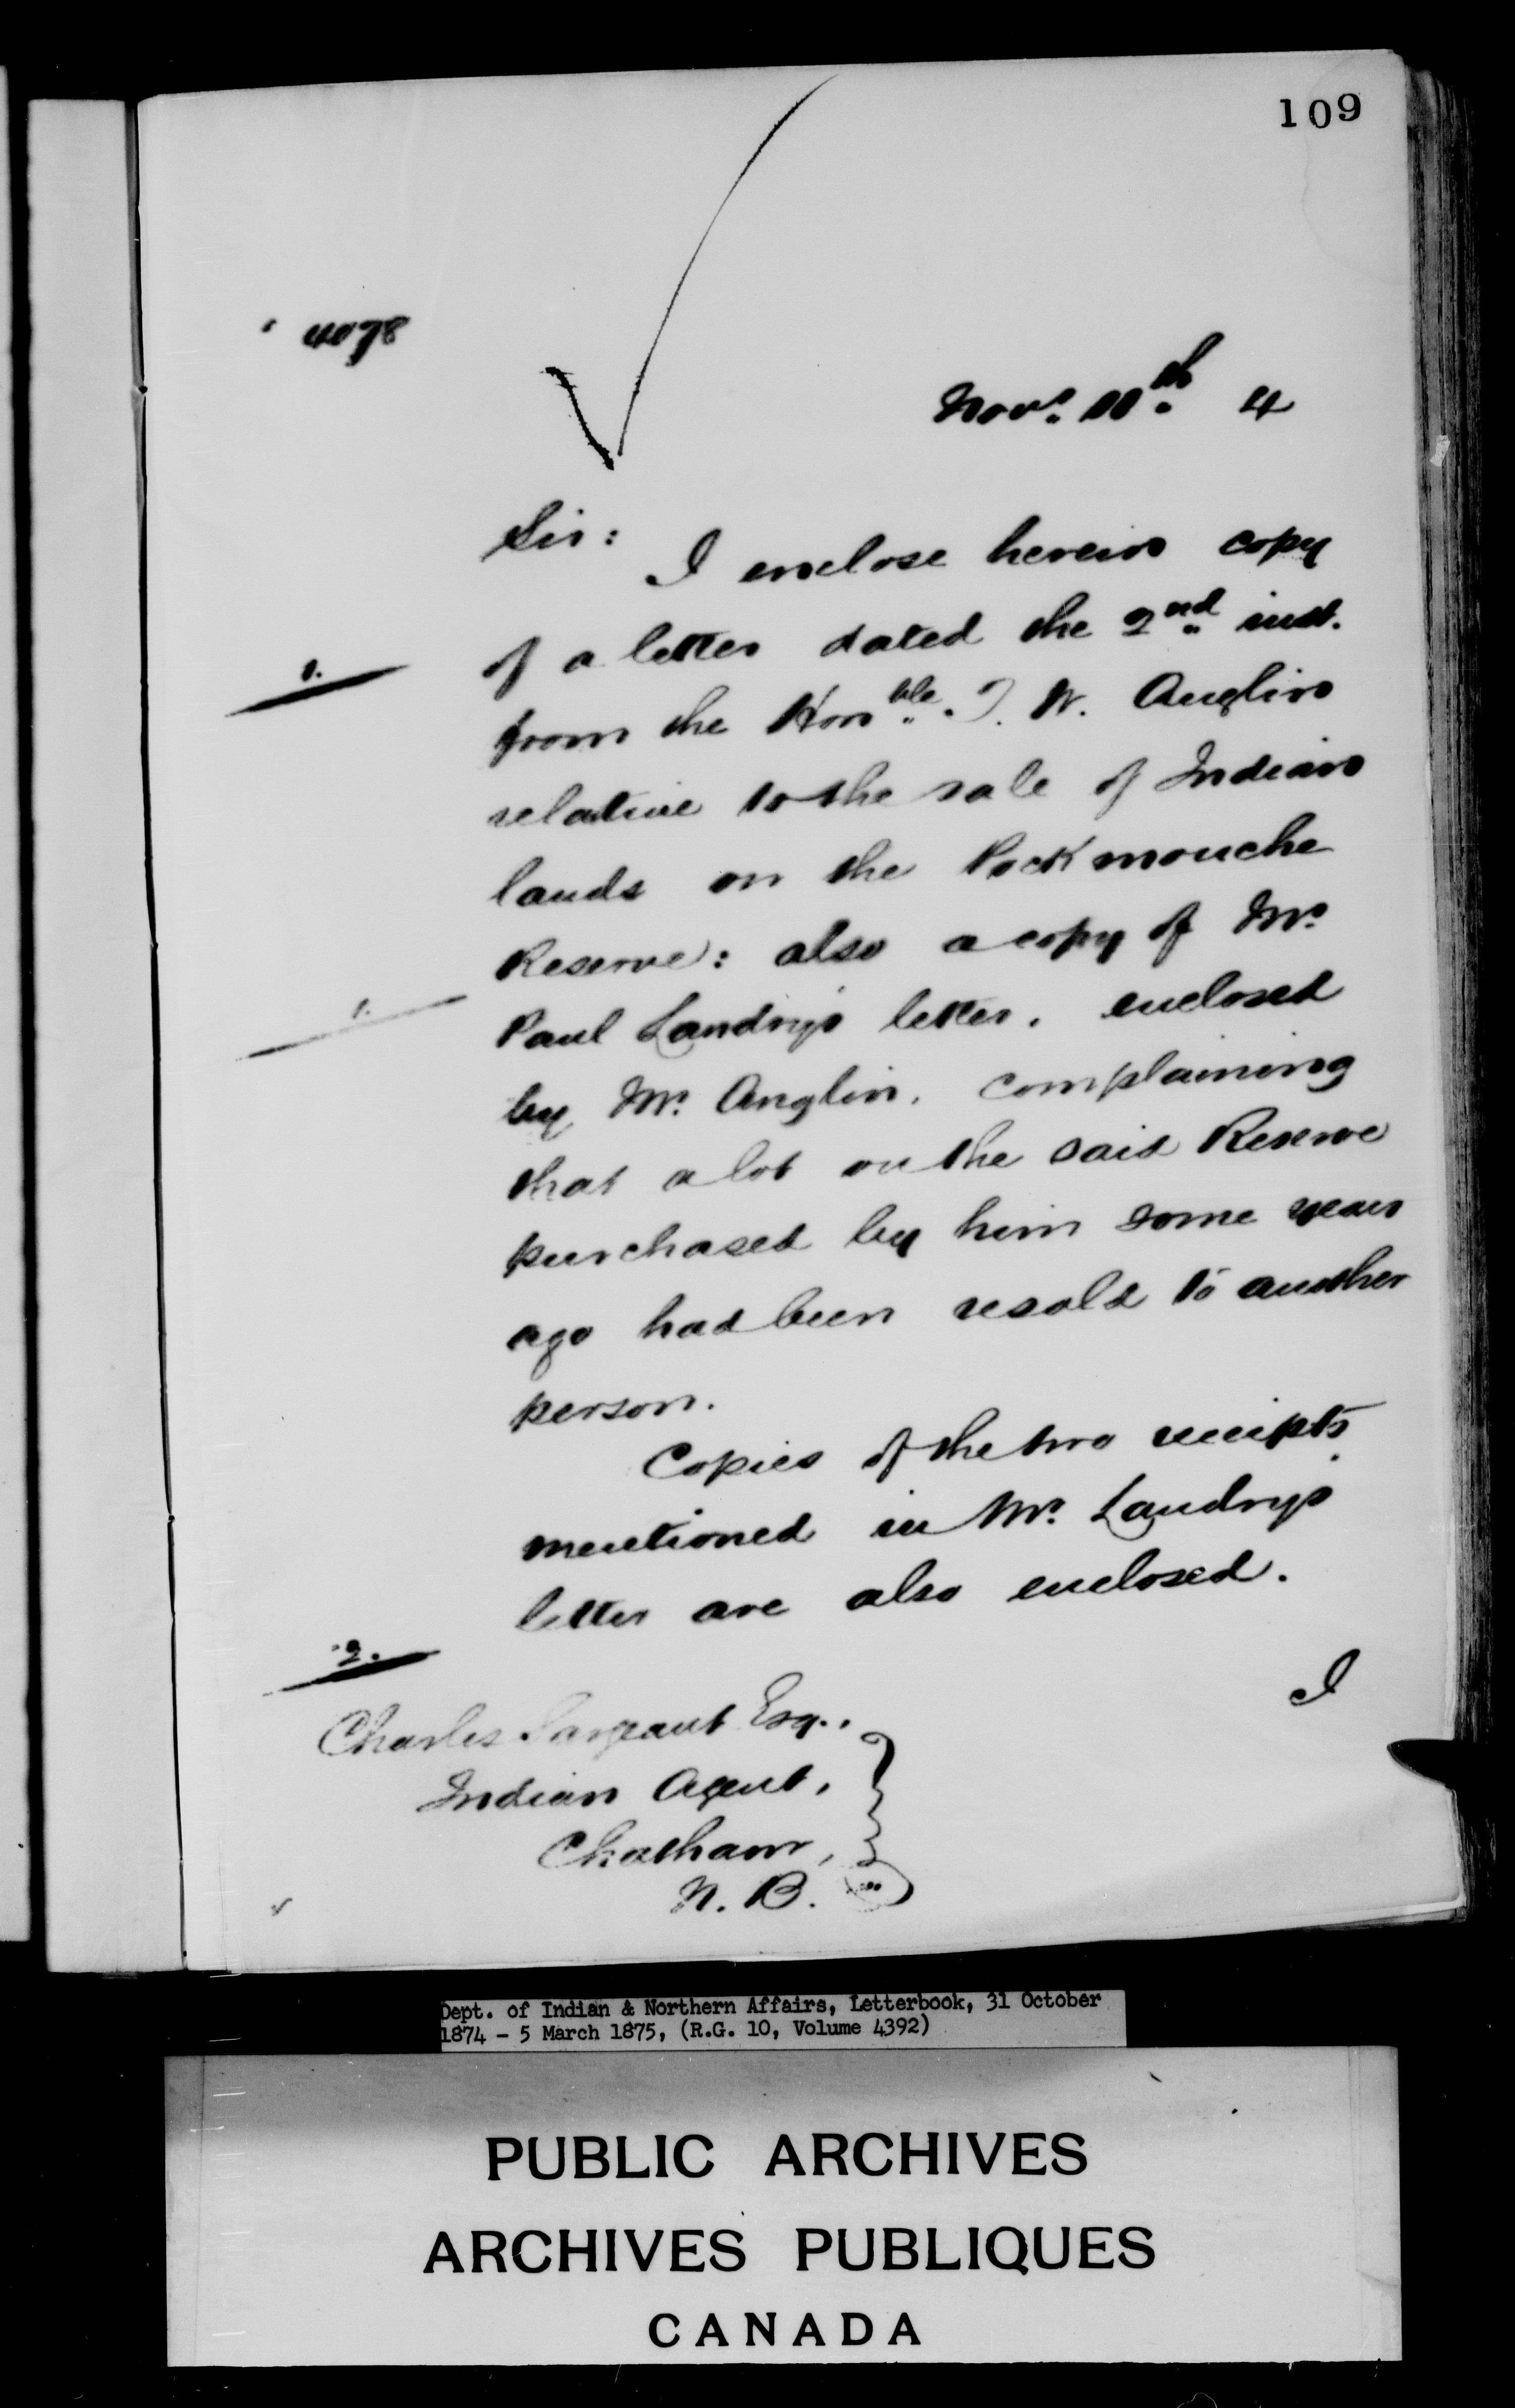 109
4078
Novr. 11th 4
Sir:
I enclose herein copy
1.
of a letter dated the 2nd inst.
from the Honble. T. W. Anglin
relative to the sale of Indian
lands on the Pockmouche
Reserve: also a copy of Mr.
1.
Paul Landry's letter, enclosed
by Mr. Anglin, complaining
that a lot on the said Reserve
purchased by him some years
ago had been resold to another
person.
Copies of the two receipts
mentioned in Mr. Landry's
letter are also enclosed.
2.
I
Charles Sargeant Esq.,
Indian Agent,
Chatham,
N. B.
Dept. of Indian & Northern Affairs, Letterbook, 31 October
1874 - 5 March 1875, (R.G. 10, Volume 4392)
PUBLIC ARCHIVES
ARCHIVES PUBLIQUES
CANADA